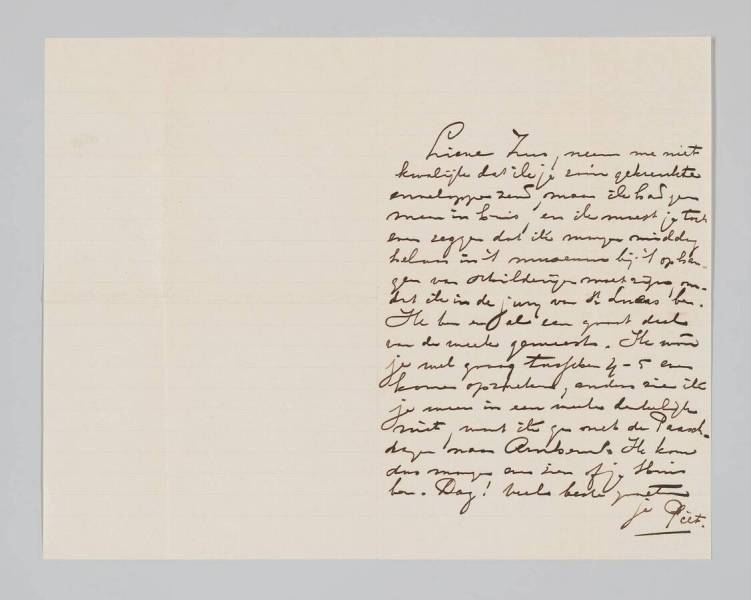 Lieve Zus, neem me niet
kwalijk dat ik je zoo'n gekreukte
enveloppe zend, maar ik had geen
meer in huis, en ik moest je toch
even zeggen dat ik morgen middag
helaas in 't museum bij 't ophan-
gen van schilderijen moet zijn, om-
dat ik in de jury van St Lucas ben.
Ik ben er al een groot deel
van de week geweest. Ik wou
je wel graag tusschen 4-5 even
komen opzoeken, anders zie ik
je weer in een week
niet, want ik ga met de Paasch-
dagen naar Ik kom
dus morgen eens zien of je thuis
ben. Dag! Veele beste groeten
je Piet.